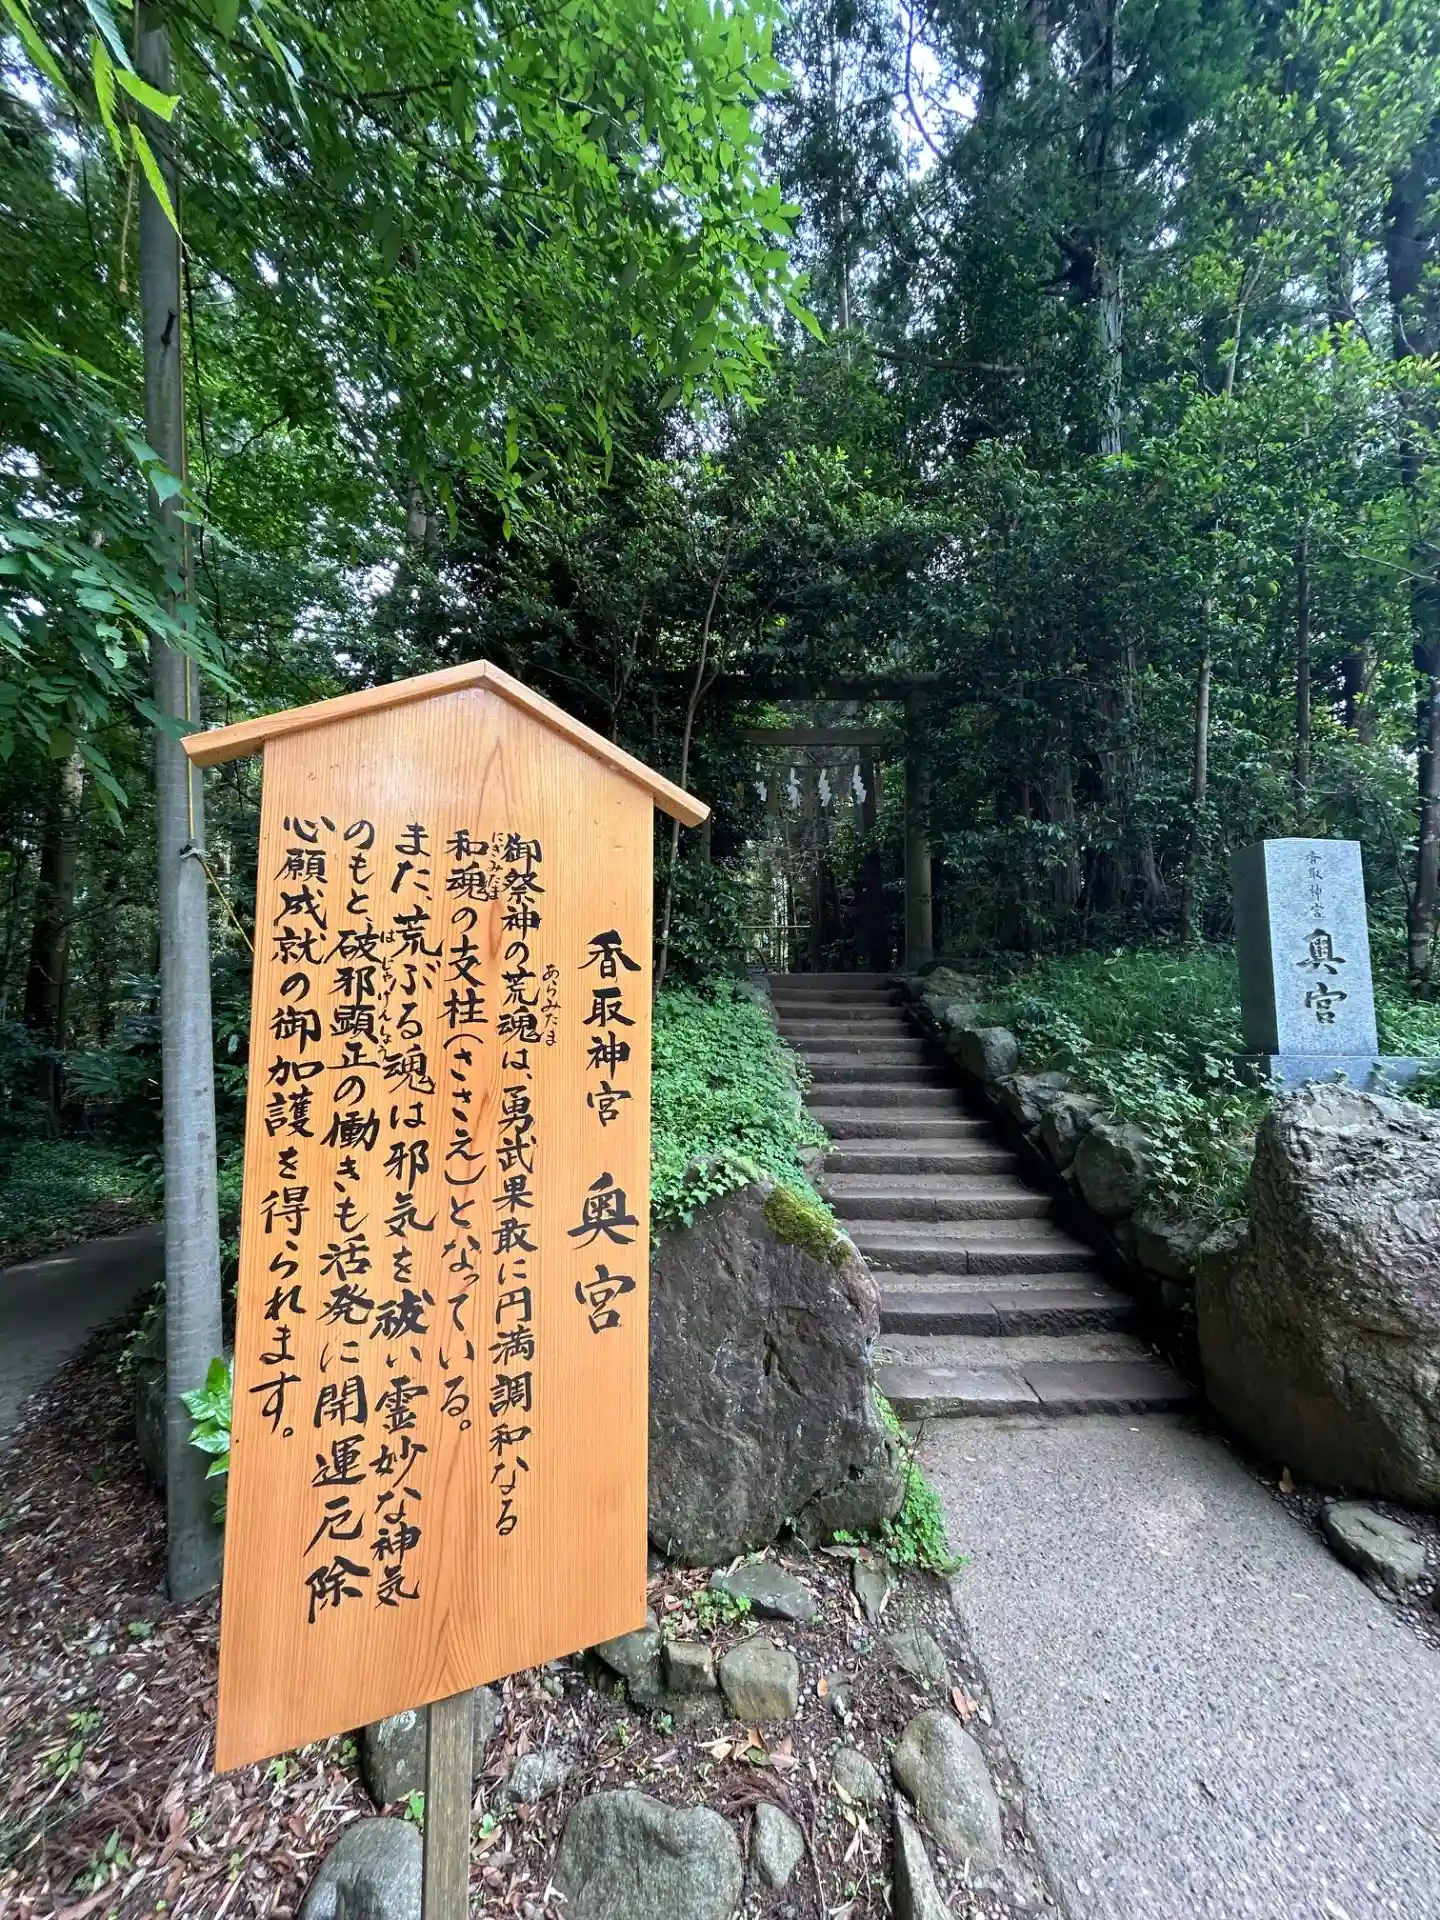 香取神宮 奥宮
御祭神の荒魂は、勇武果敢に円満調和なる
あらみたま
和魂の支柱(ささえ)となっている。
にぎみたま
また、荒ぶる魂は邪気を祓い霊妙な神気
のもと、破邪顕正の働きも活発に開運厄除
はじゃげんしょう
心願成就の御加護を得られます。
香取神宮
奥宮